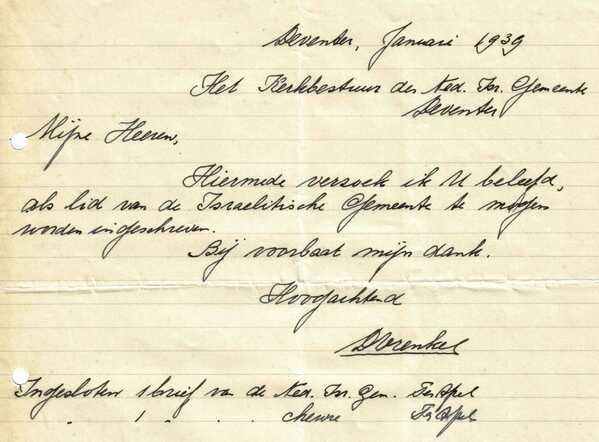 Deventer, Januari 1939
Het Kerkbestuur der Ned. Isr. Gemeente
Deventer
Mijne Heeren,
Hiermede verzoek ik U beleefd,
als lid van de Israelitische Gemeente te mogen
worden ingeschreven.
Bij voorbaat mijn dank.
Hoogachtend
DVrenkel
Ingesloten 1 brief van de Ned. Isr. Gem. Ter Apel
" 1 " " " chewre Ter Apel